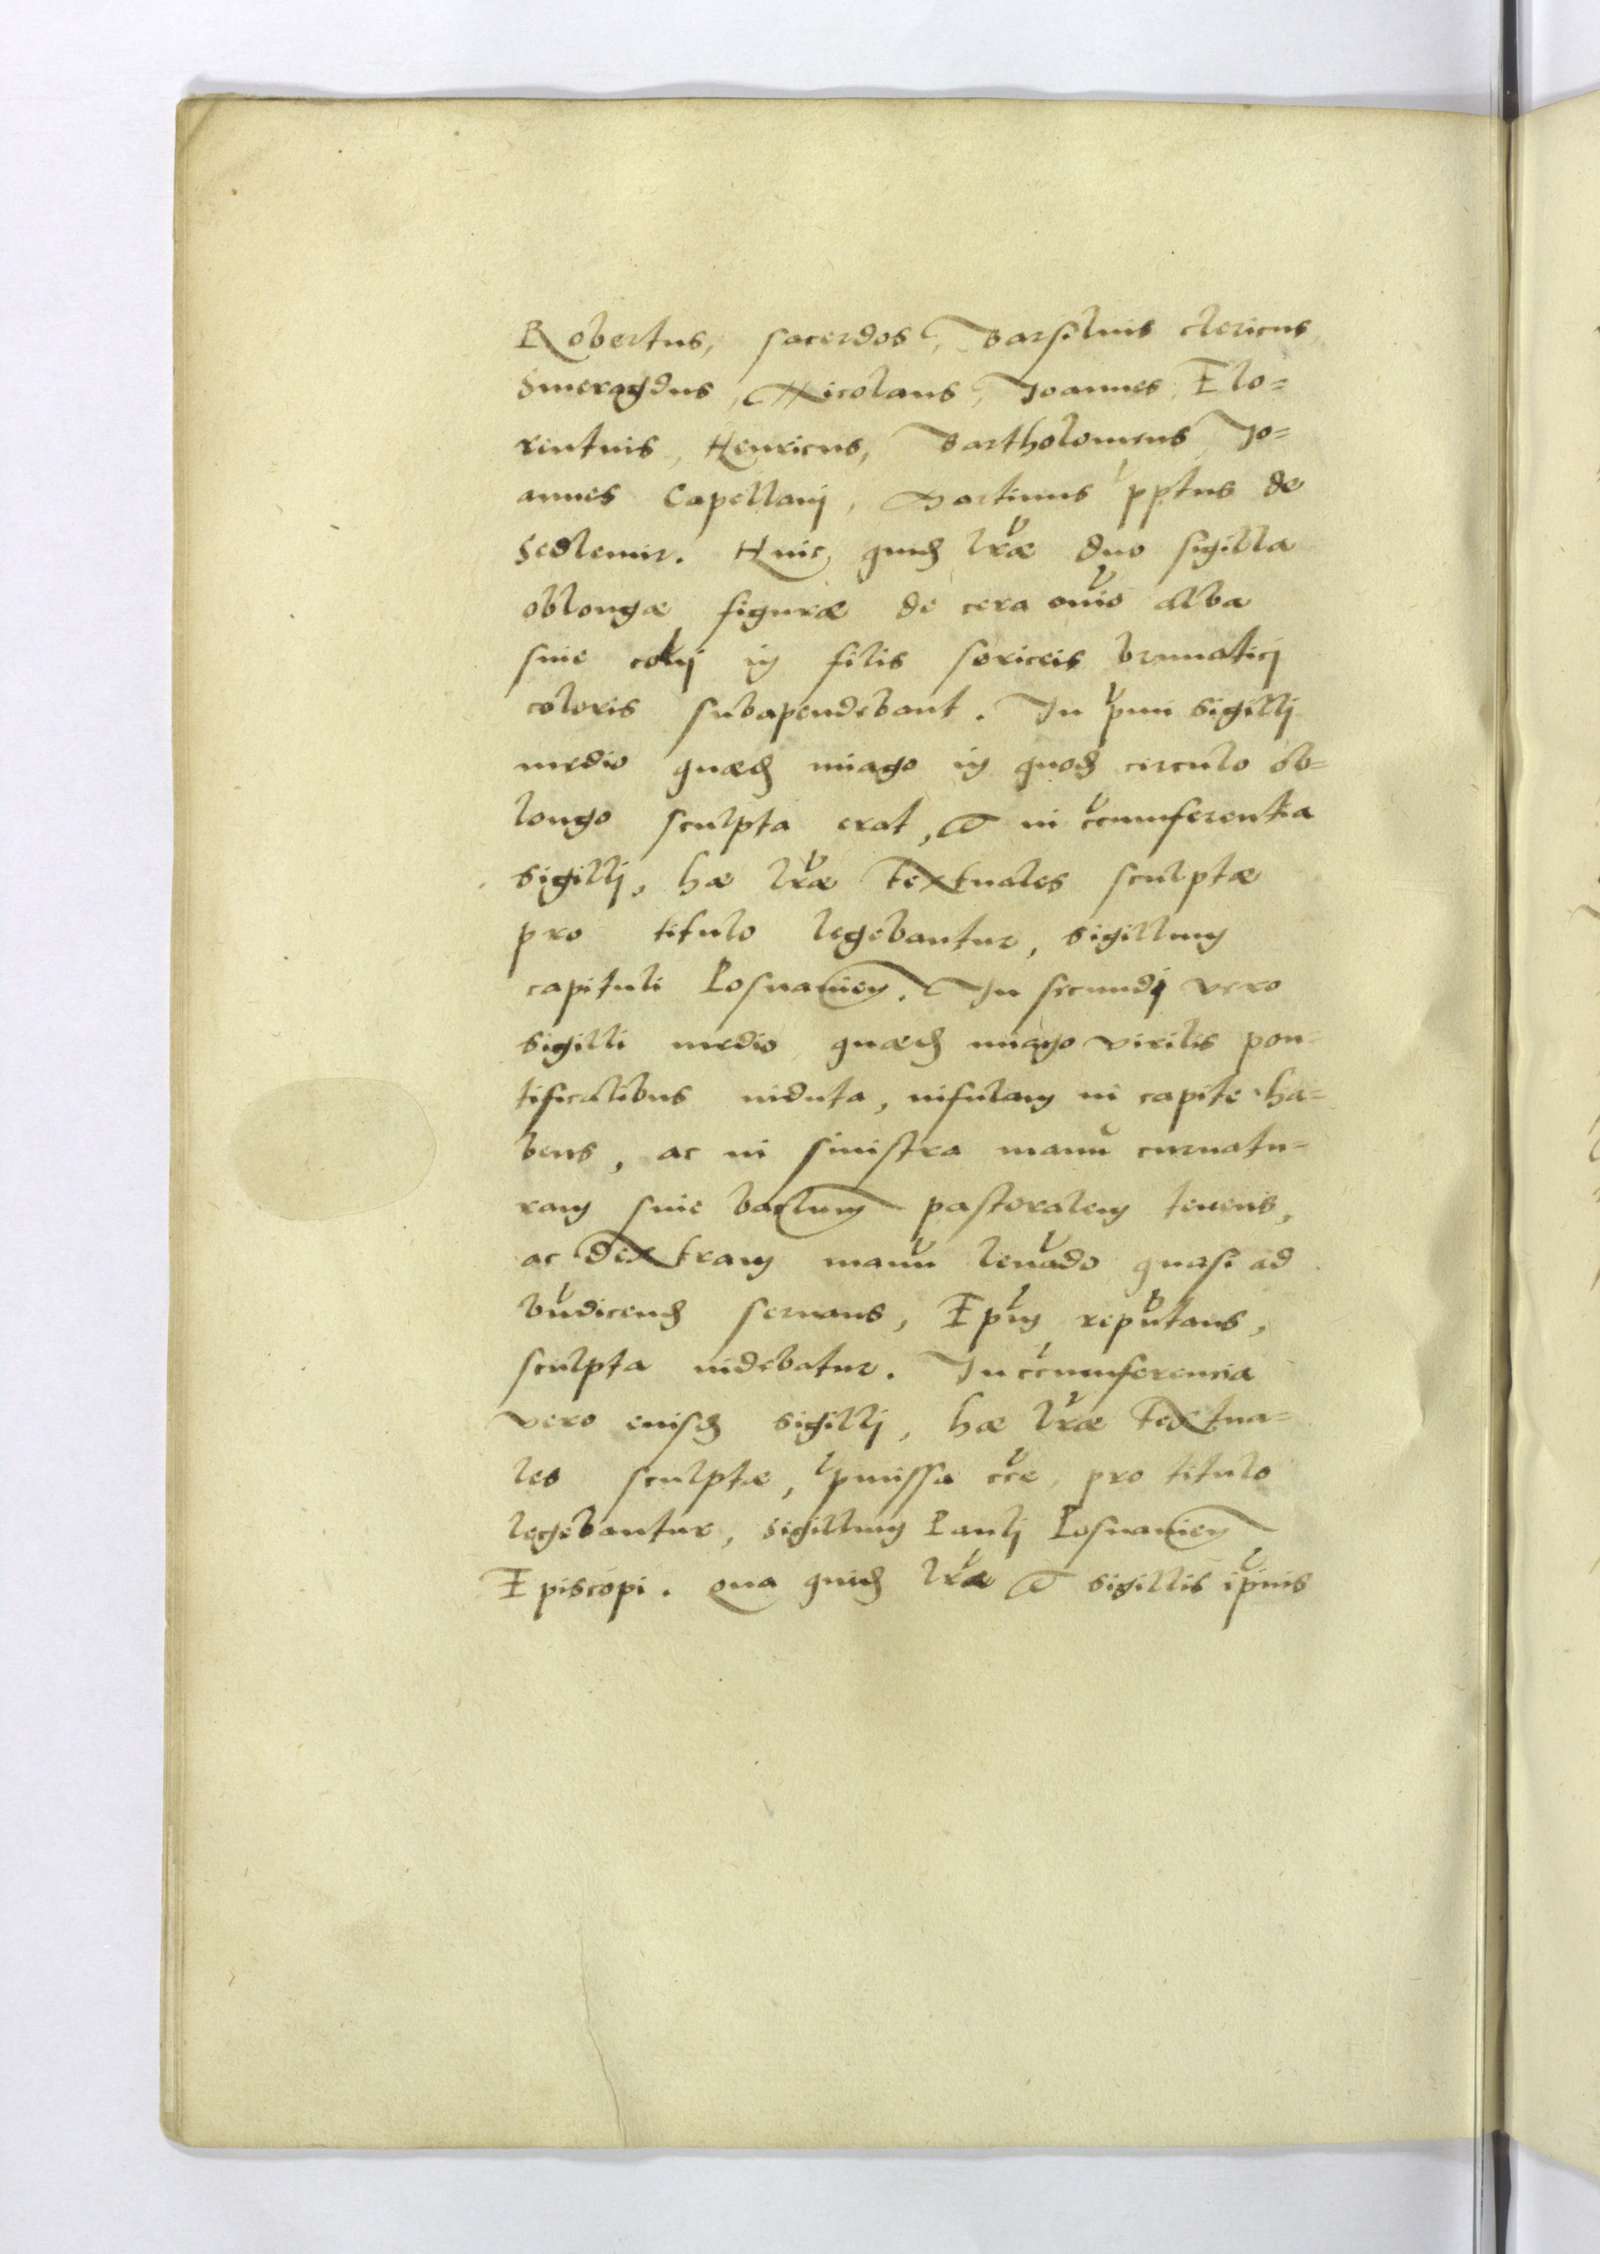 Robertus, sacerdos, Barsiluis clericus,
Smeragdus, Nicolaus, Joannes, Flo-
rentius, Henricus, Bartholomeus, Jo-
annes Capellani, Martinus pptus de
Sedlemir. Huic quid lræ duo sigilla
oblongæ figuræ de cera oĩo alba
siue colij in filis sericeis brunaticj
coloris subapendebant. In pmi sigillj
medio quæd imago in quod circulo ob-
longo sculpta erat, & in ccumferentia
sigillj, hæ lræ textuales sculptæ
pro titulo legebantur, sigillum
capituli Posnanien. In secundj vero
sigilli medio quæd imago virilis pon-
tificalibus induta, infulam in capite ha-
bens, ac in sinistra manu curuatu-
ram siue baclum pastoralem tenens,
ac dextram manu leuado quasi ad
bndicend seruans, Epm repntans,
sculpta uidebatur. In ccumferencia
vero eiusd sigillj, hæ lræ textua-
les sculptæ, pmissa cce, pro titulo
legebantur, sigillum Paulj Posnanien
Episcopi. Qua quid lra & sigillis ipius